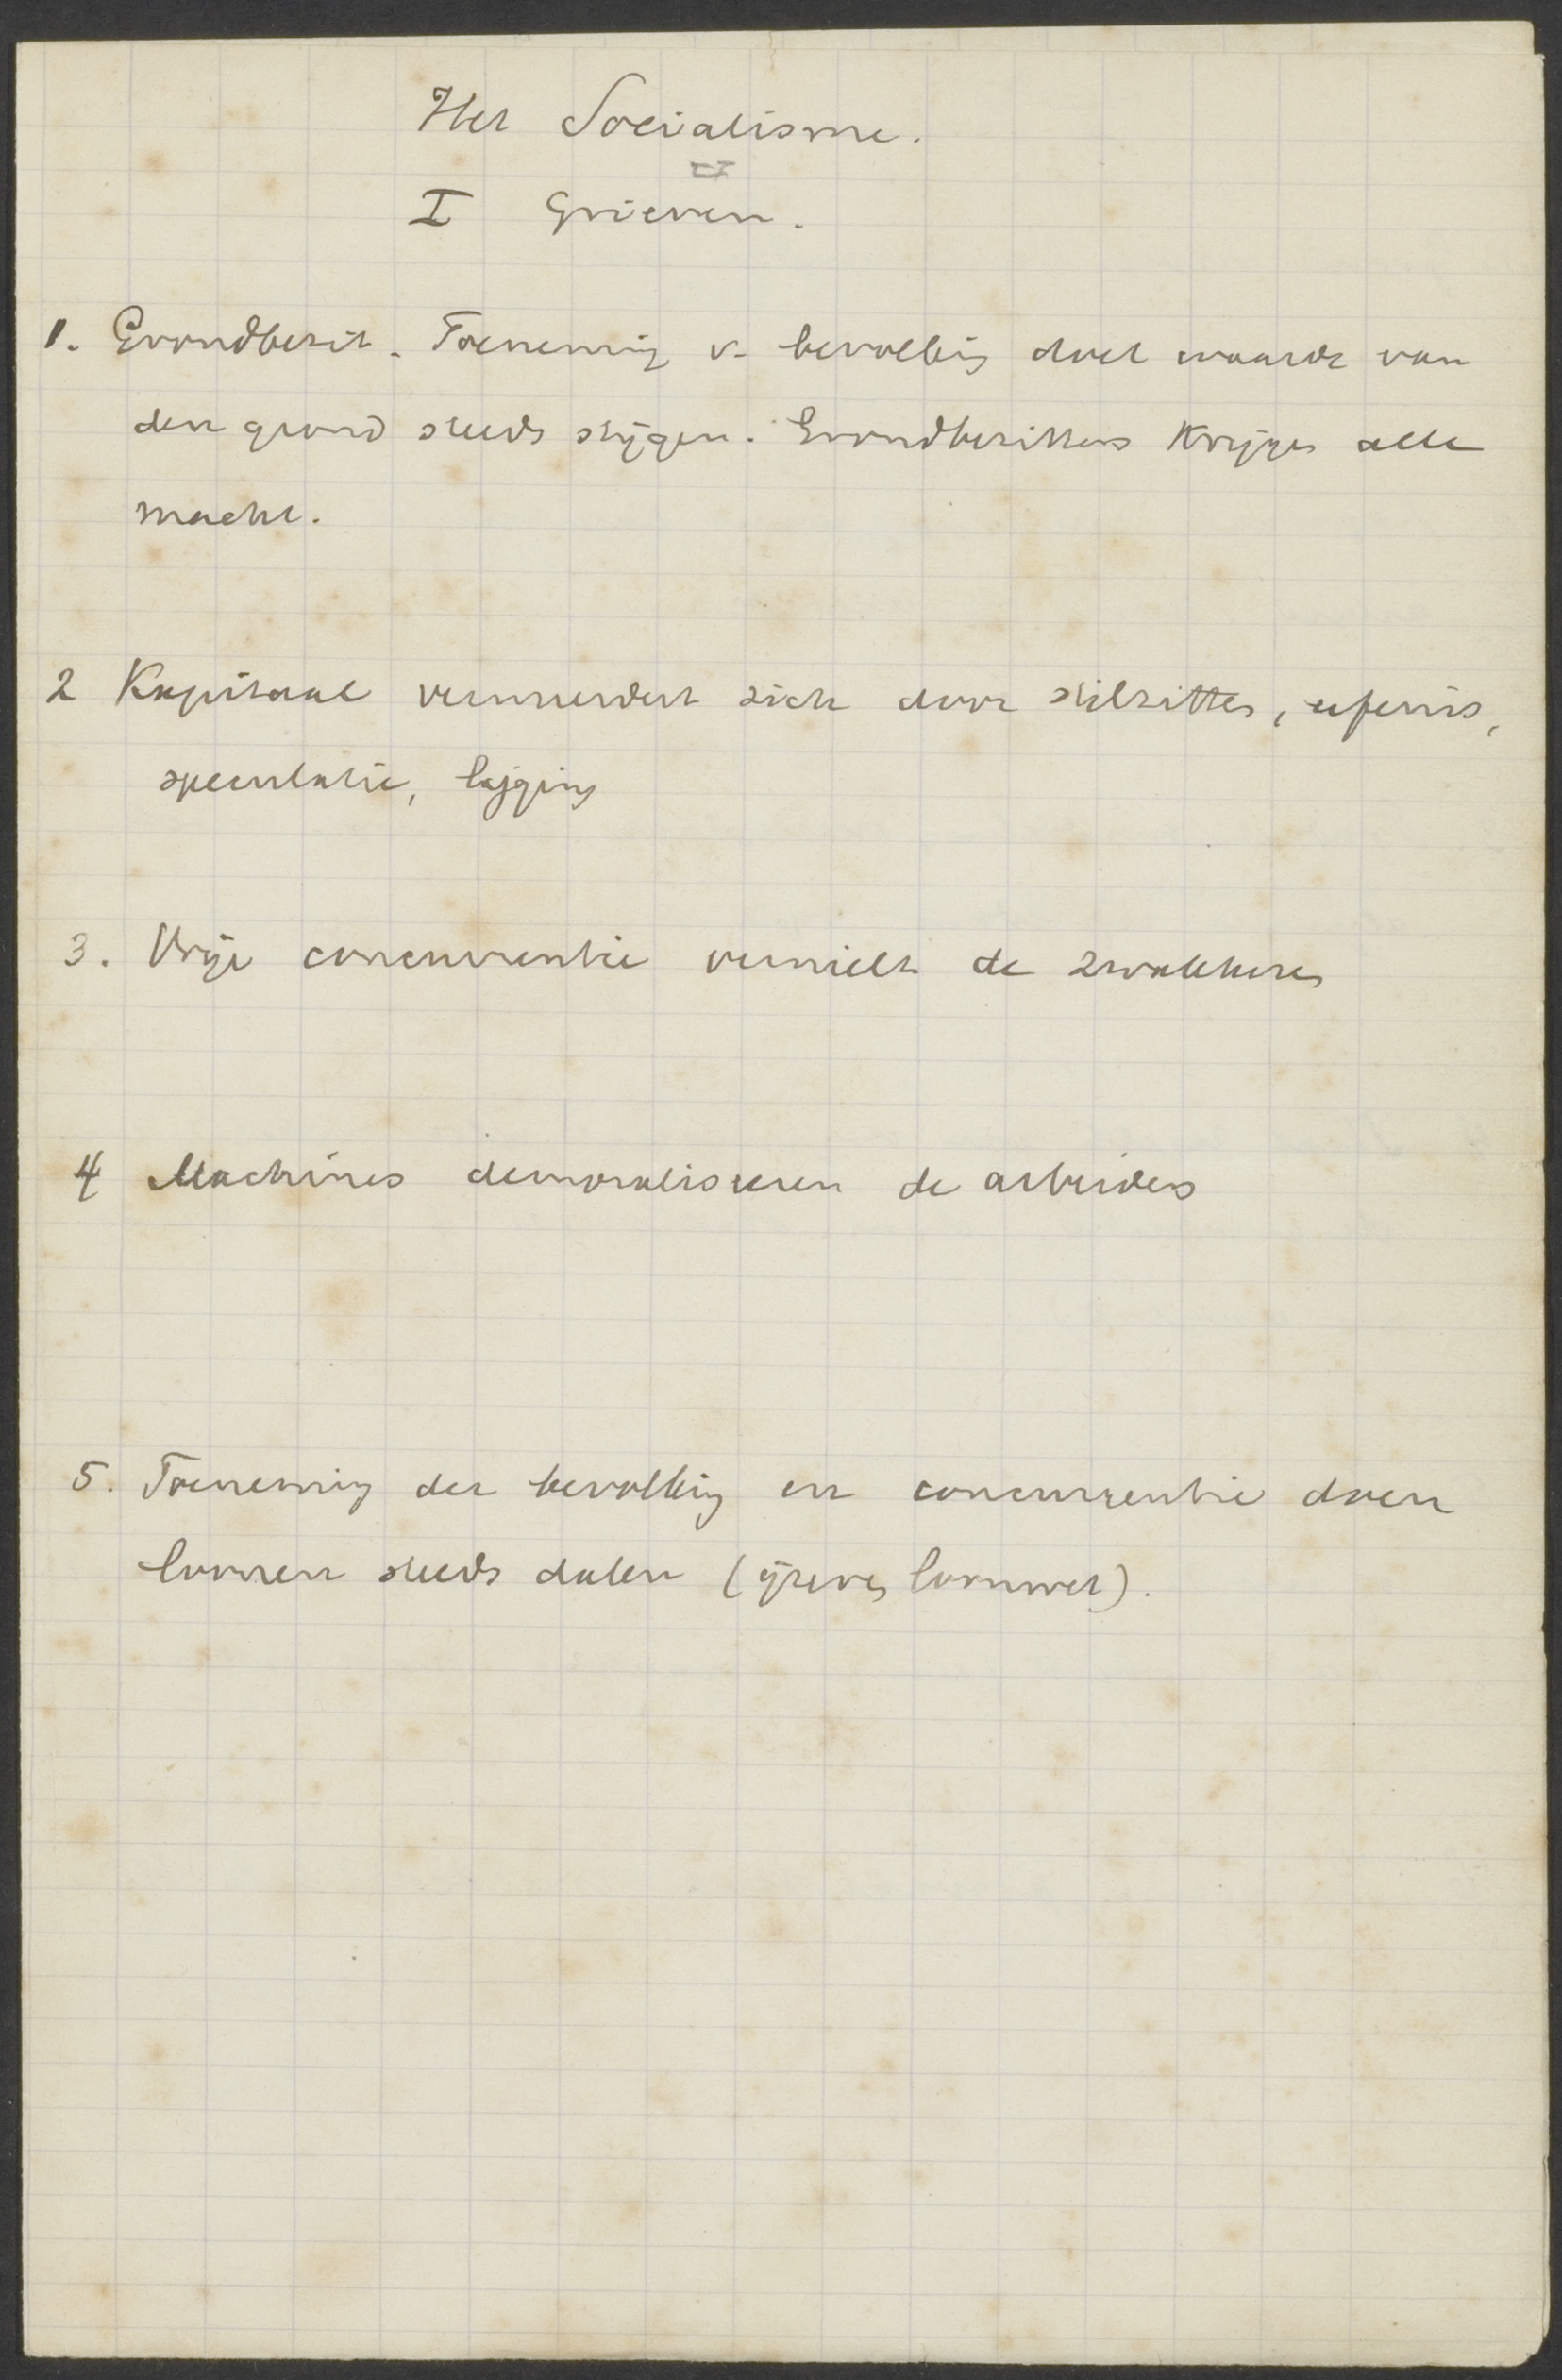 Het Socialisme.
I Grieven.
1. Grondbezit. Toeneming v. bevolking doet waarde van
den grond steeds stijgen. Grondbezitters krijgen alle
macht.
2 Kapitaal vermeerdert zich door stilzitten, erfenis,
speculatie, ligging
3. Vrije concurrentie vernielt de zwakkeren
4 Machines demoraliseeren de arbeiders
5. Toeneming der bevolking en concurrentie doen
loonen steeds dalen (ijzeren loonwet).